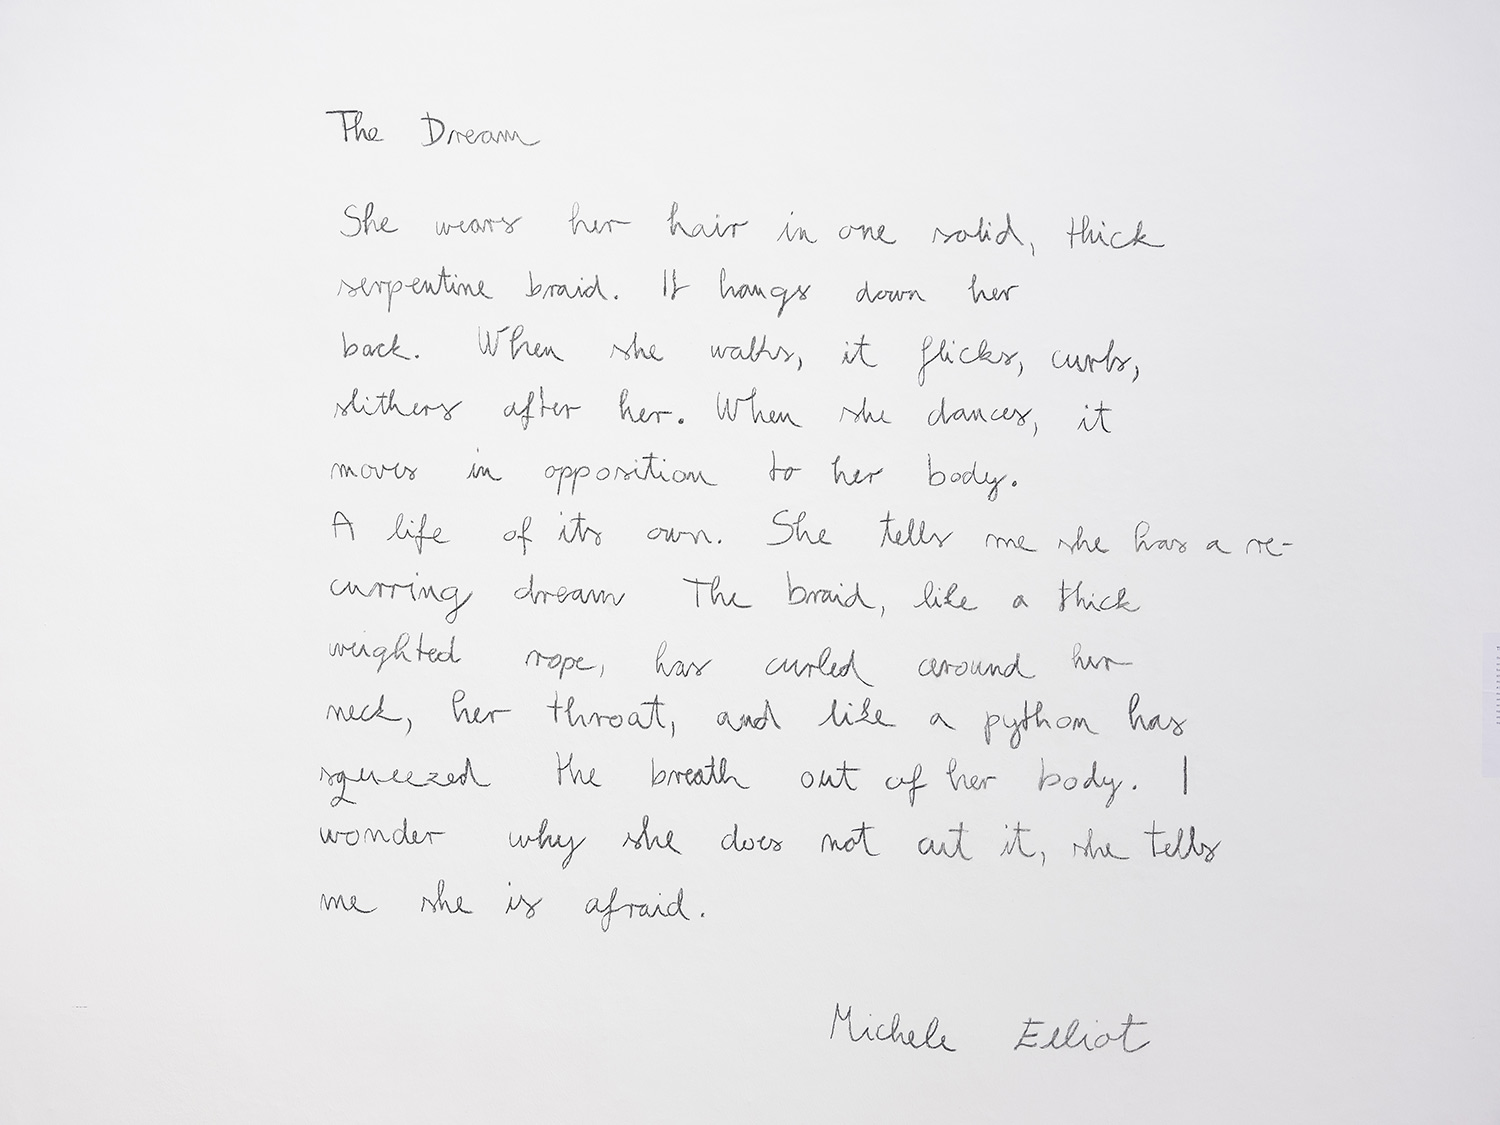 The Dream
She wears her hair in one solid, thick
serpentine braid. It hangs down her
back. When she walks, it flicks, curls,
slithers after her. When she dances, it
moves in opposition to her body.
A life of its own. She tells me she has a re-
curring dream The braid, like a thick
weighted rope, has curled around her
neck, her throat, and like a python has
squeezed the breath out of her body. I
wonder why she does not cut it, she tells
me she is afraid.
Michele Elliot